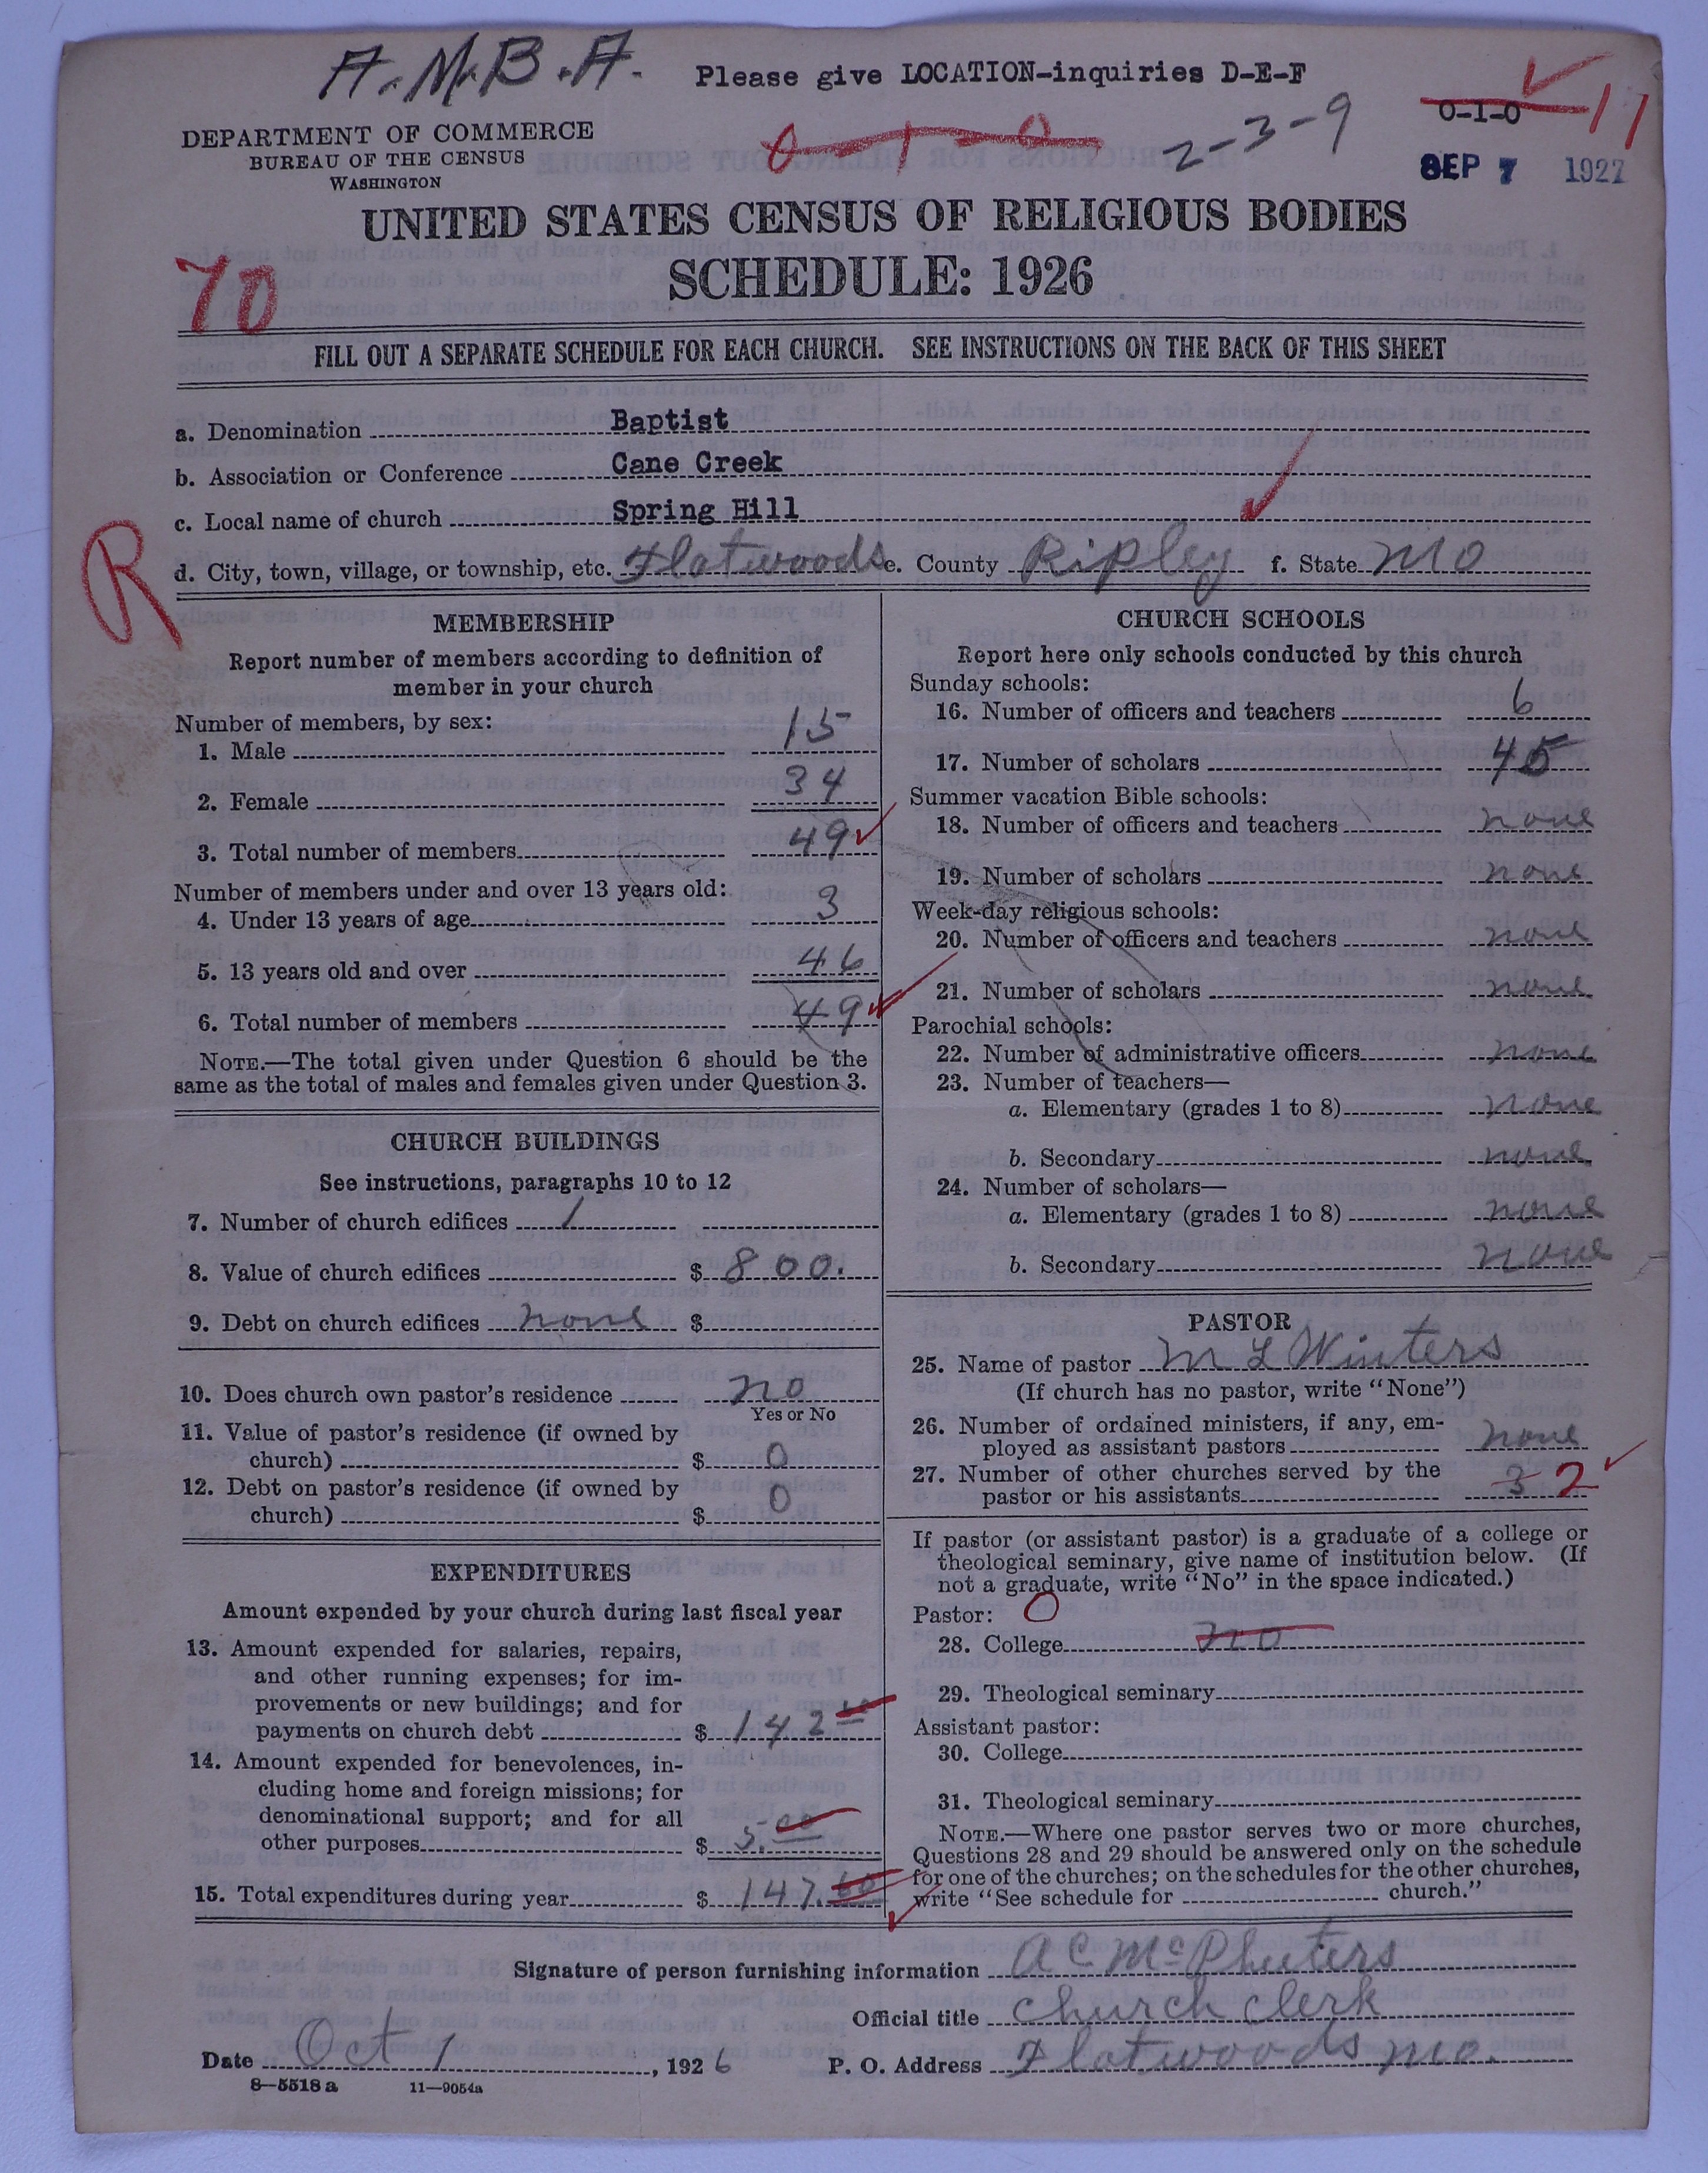 A.M.B.A. Please give LOCATION-inquiries D-E-F
0-1-0 11
DEPARTMENT OF COMMERCE
BUREAU OF THE CENSUS
WASHINGTON
0-1-0 2-3-9
SEP 7 1927
UNITED STATES CENSUS OF RELIGIOUS BODIES
70 SCHEDULE: 1926
FILL OUT A SEPARATE SCHEDULE FOR EACH CHURCH. SEE INSTRUCTIONS ON THE BACK OF THIS SHEET
a. Denomination Baptist
b. Association or Conference Cane Creek
c. Local name of church Spring Hill
R
d. City, town, village, or township, etc. Flatwoods e. County Ripley f. State Mo
MEMBERSHIP
Report number of members according to definition of
member in your church
Number of members, by sex:
1. Male 15
2. Female 34
3. Total number of members 49
Number of members under and over 13 years old:
4. Under 13 years of age 3
5. 13 years old and over 46
6. Total number of members 49
NOTE.—The total given under Question 6 should be the
same as the total of males and females given under Question 3.
CHURCH BUILDINGS
See instructions, paragraphs 10 to 12
7. Number of church edifices 1
8. Value of church edifices $ 800.
9. Debt on church edifices none $
10. Does church own pastor's residence no
Yes or No
11. Value of pastor's residence (if owned by
church) $ 0
12. Debt on pastor's residence (if owned by
church) $ 0
EXPENDITURES
Amount expended by your church during last fiscal year
13. Amount expended for salaries, repairs,
and other running expenses; for im-
provements or new buildings; and for
payments on church debt $ 142
14. Amount expended for benevolences, in-
cluding home and foreign missions; for
denominational support; and for all
other purposes $ 5.00
15. Total expenditures during year $ 147.60
CHURCH SCHOOLS
Report here only schools conducted by this church
Sunday schools:
16. Number of officers and teachers 6
17. Number of scholars 45
Summer vacation Bible schools:
18. Number of officers and teachers none
19. Number of scholars none
Week-day religious schools:
20. Number of officers and teachers none
21. Number of scholars none
Parochial schools:
22. Number of administrative officers none
23. Number of teachers—
a. Elementary (grades 1 to 8) none
b. Secondary none
24. Number of scholars—
a. Elementary (grades 1 to 8) none
b. Secondary none
PASTOR
25. Name of pastor M L Winters
(If church has no pastor, write "None")
26. Number of ordained ministers, if any, em-
ployed as assistant pastors none
27. Number of other churches served by the
pastor or his assistants 3 2
If pastor (or assistant pastor) is a graduate of a college or
theological seminary, give name of institution below. (If
not a graduate, write "No" in the space indicated.)
Pastor: 0
28. College no
29. Theological seminary
Assistant pastor:
30. College
31. Theological seminary
NOTE.—Where one pastor serves two or more churches,
Questions 28 and 29 should be answered only on the schedule
for one of the churches; on the schedules for the other churches,
write "See schedule for church."
Signature of person furnishing information A C McPheeters
Official title Church Clerk
Date Oct 1, 1926 P. O. Address Flatwoods Mo.
8—5518 a 11—9054a